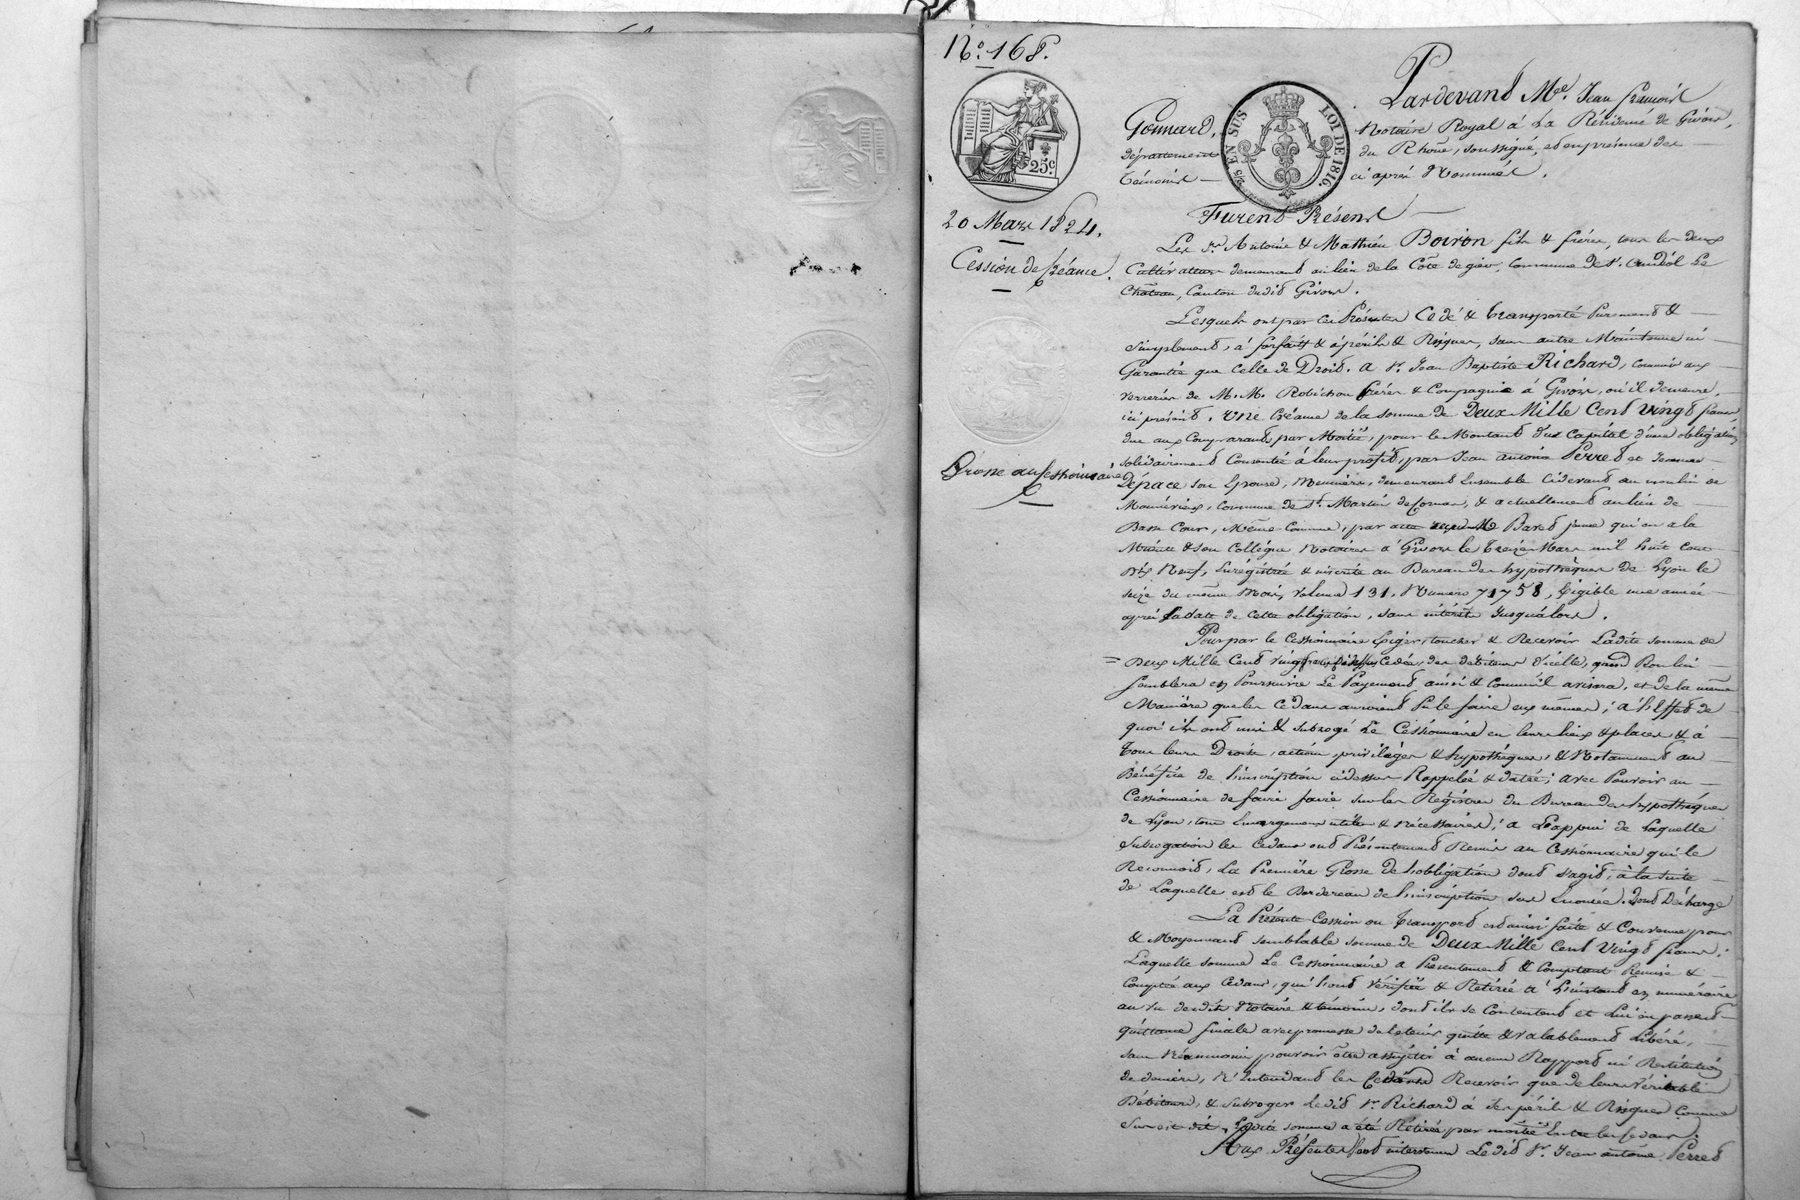 No. 168.
25c.
EN SUS LOI DE 1816.
20 Mars 1824.
Cession de Créance.
Grosse au Cessionnaire
Pardevant Me. Jean françois
Gonnard, Notaire Royal à La Résidence de Givors,
département du Rhône, soussigné, et en présence des
témoins ci après Nommés.
Furent Présens
Les srs Antoine & Mathieu Boiron fils & frères, tous les deux
Cultivateurs demeurant au lieu de la Côte de gier, commune de St. Andéol Le
Château, Canton dudit Givors.
Lesquels ont par ces Présentes Cédé & transporté Purement &
Simplement, à forfait & à périls & Risques, sans autre Maintenue ni
Garantie que Celle de Droit. à sr. Jean Baptiste Richard, commis aux
verreries de M.M. Robichon frères & Compagnie à Givors, où il demeure,
ici présent. Une Créance de la somme de Deux Mille Cent Vingt francs
due aux Comparants, par Moitié, pour le Montant du Capital d'une obligation
solidairement Consentie à leur profit, par Jean antoine Perret et Jeanne
Dépace son Epouse, Meuniers, demeurant Ensemble Cidevant au moulin de
commune de St. Martin de Cornas, & actuellement au lieu de
Basse Cour, Même Commune, par acte reçu Me Baret jeune qui en a la
Minute & son Collègue Notaires à Givors le treize Mars mil huit cent
Dix Neuf, Enrégistrée & inscrite au Bureau des hypothèques de Lyon le
seize du même Mois, Volume 131. Numéro 71758, Exigible une année
après la date de Cette obligation, sans intérêts Jusqu'alors.
Pour par le Cessionnaire Exiger, toucher & Recevoir Ladite somme de
Deux Mille Cent Vingt francs Cidessus Cédée, des débiteurs d'icelle, quand Bon lui
Semblera en Poursuivre Le Payement ainsi & Comm'il avisera, et de la même
Manière que les Cédans auroient Pu le faire eux mêmes; à l'Effet de
quoi ils ont mis & subrogé Le Cessionnaire en leurs lieux & places & à
tous leurs Droits, actions, privilèges & hypothèques, & Notamment au
Bénéfice de l'inscription cidessus Rappelée & datée; avec Pouvoir au
Cessionnaire de faire faire sur les Régistres du Bureau des hypothèques
de Lyon, tous Emargemens utiles & Nécessaires; à L'appui de Laquelle
Subrogation les Cédans ont Présentement Remis au Cessionnaire qui le
Reconnoit, La Première Grosse de l'obligation dont s'agit, à la suite
de Laquelle est le Bordereau de l'inscription sus Enoncée. Dont Décharge
La Présente Cession ou Transport est ainsi faite & Convenue pour
& Moyennant semblable somme de Deux Mille Cent Vingt francs;
Laquelle somme Le Cessionnaire a Présentement & Comptant Remise &
Comptée aux Cédans, qui l'ont Vérifiée & Retirée à l'instant en numéraire
au vu desdits Notaire & témoins, dont ils se Contentent et lui en passent
quittance finale avec promesse de le tenir quitte & valablement Libéré,
sans Néanmoins pouvoir être assujetti à aucun Rapport ni Restitution
de deniers, N'Entendant les Cédants Recevoir que de leurs Véritables
Débiteurs, & subroger ledit sr. Richard à ses périls & Risques Comme
Sus est dit, Ladite somme a été Retirée par moitié Entre les Cédans.
Aux Présentes sont intervenus Le dit sr. Jean antoine Perret